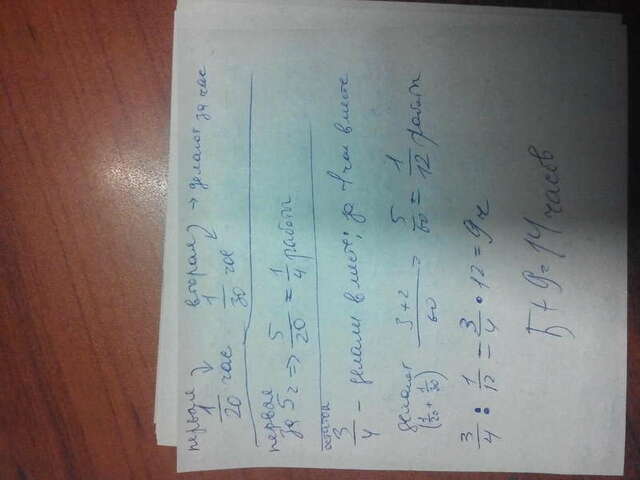 первая вторая → делают за час
1/20 час 1/30 час
первая
за 5 ч => 5/20 = 1/4 работы
остаток
3/4 - делали вместе; за 1 час вместе
делают (1/20 + 1/30) 3+2/60 => 5/60 = 1/12 работы
3/4 : 1/12 = 3/4 · 12 = 9 ч
5 + 9 = 14 часов